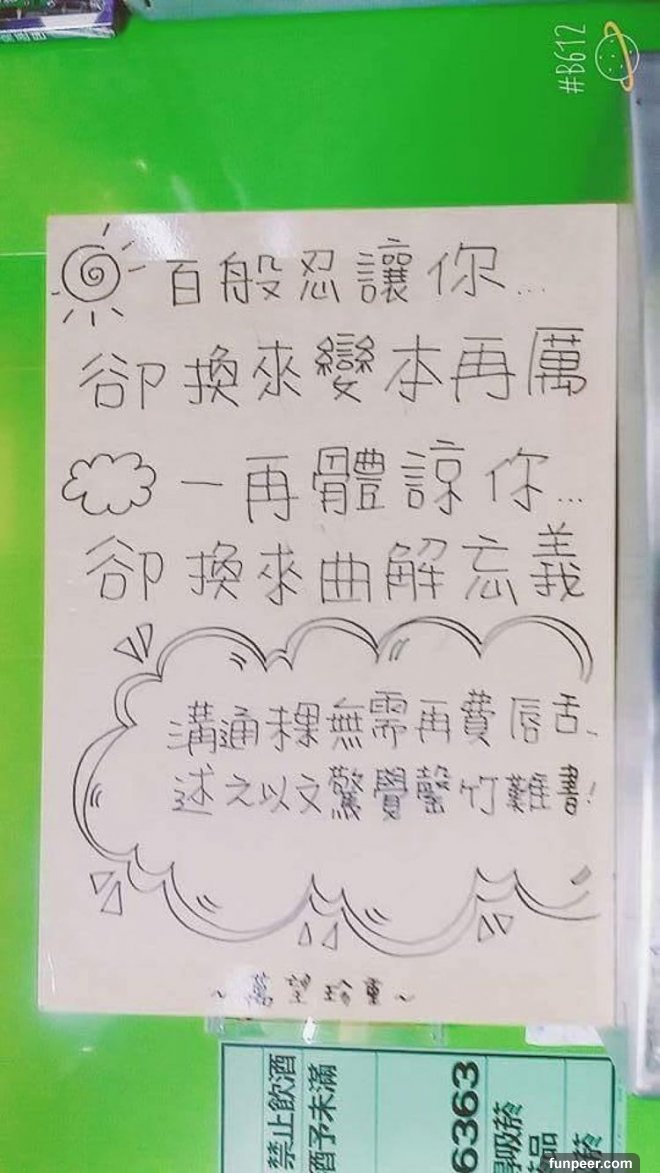 #B612
百般忍讓你...
卻換來變本再厲
一再體諒你...
卻換來曲解忘義
溝通粿無需再費唇舌、
述之以文驚覺罄竹難書!
~萬望珍重~
禁止飲酒
酒予未滿
6363
吸菸
品
菸
funpeer.com